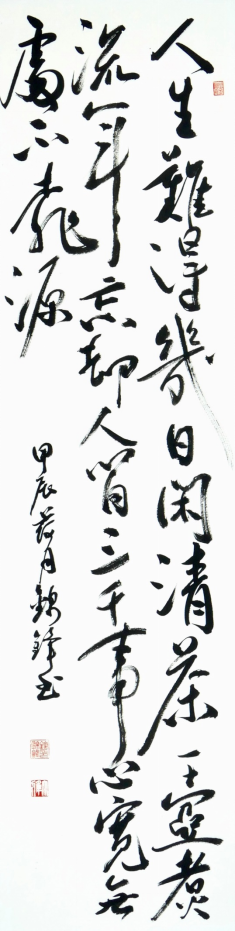 人生難得幾日閑清茶一壺煮
流年忘却人間三千事心寬無
處不桃源
甲辰月錦鋒書